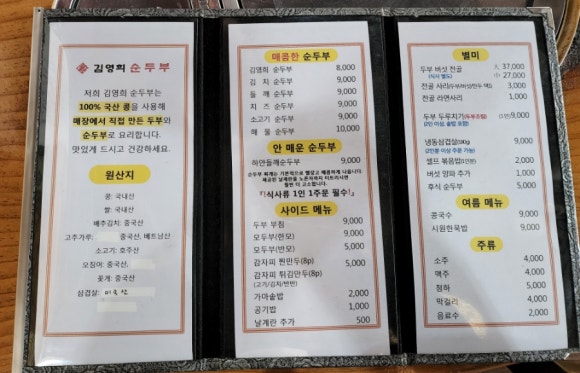 김영희 순두부
저희 김영희 순두부는
100% 국산 콩을 사용해
매장에서 직접 만든 두부와
순두부로 요리합니다.
맛있게 드시고 건강하세요.
원산지
콩: 국내산
쌀: 국내산
배추김치: 중국산
고추가루: 중국산, 베트남산
소고기: 호주산
오징어: 중국산,
꽃게: 중국산
삼겹살:
매콤한 순두부
김영희 순두부 8,000
김치 순두부 9,000
들깨 순두부 9,000
치즈 순두부 9,000
소고기 순두부 9,000
해물 순두부 10,000
안 매운 순두부
하얀들깨순두부 9,000
순두부 찌개는 기본적으로 맵고 제공됩니다.
『식사류 1인 1주문 필수!』
사이드 메뉴
두부 부침 9,000
모두부(한모) 9,000
모두부(반모) 5,000
감자피 찐만두(8p) 5,000
감자피 튀김만두(8p) 5,000
(고기/김치/반반)
가마솥밥 2,000
공기밥 1,000
날계란 추가 500
별미
두부 버섯 전골 大 37,000
(식사 별도) 中 27,000
전골 사리(두부/버섯/만두 택) 3,000
전골 라면사리 2,000
두부 두루치기(두부조림) (1인)9,000
(2인 이상 솥밥 포함)
냉동삼겹살 9,000
(2인분 이상 주문 가능)
셀프 볶음밥(1인분) 2,000
버섯 양파 추가 1,000
후식 순두부 5,000
여름 메뉴
콩국수 9,000
시원한묵밥 9,000
주류
소주 4,000
맥주 4,000
청하 5,000
막걸리 4,000
음료수 2,000